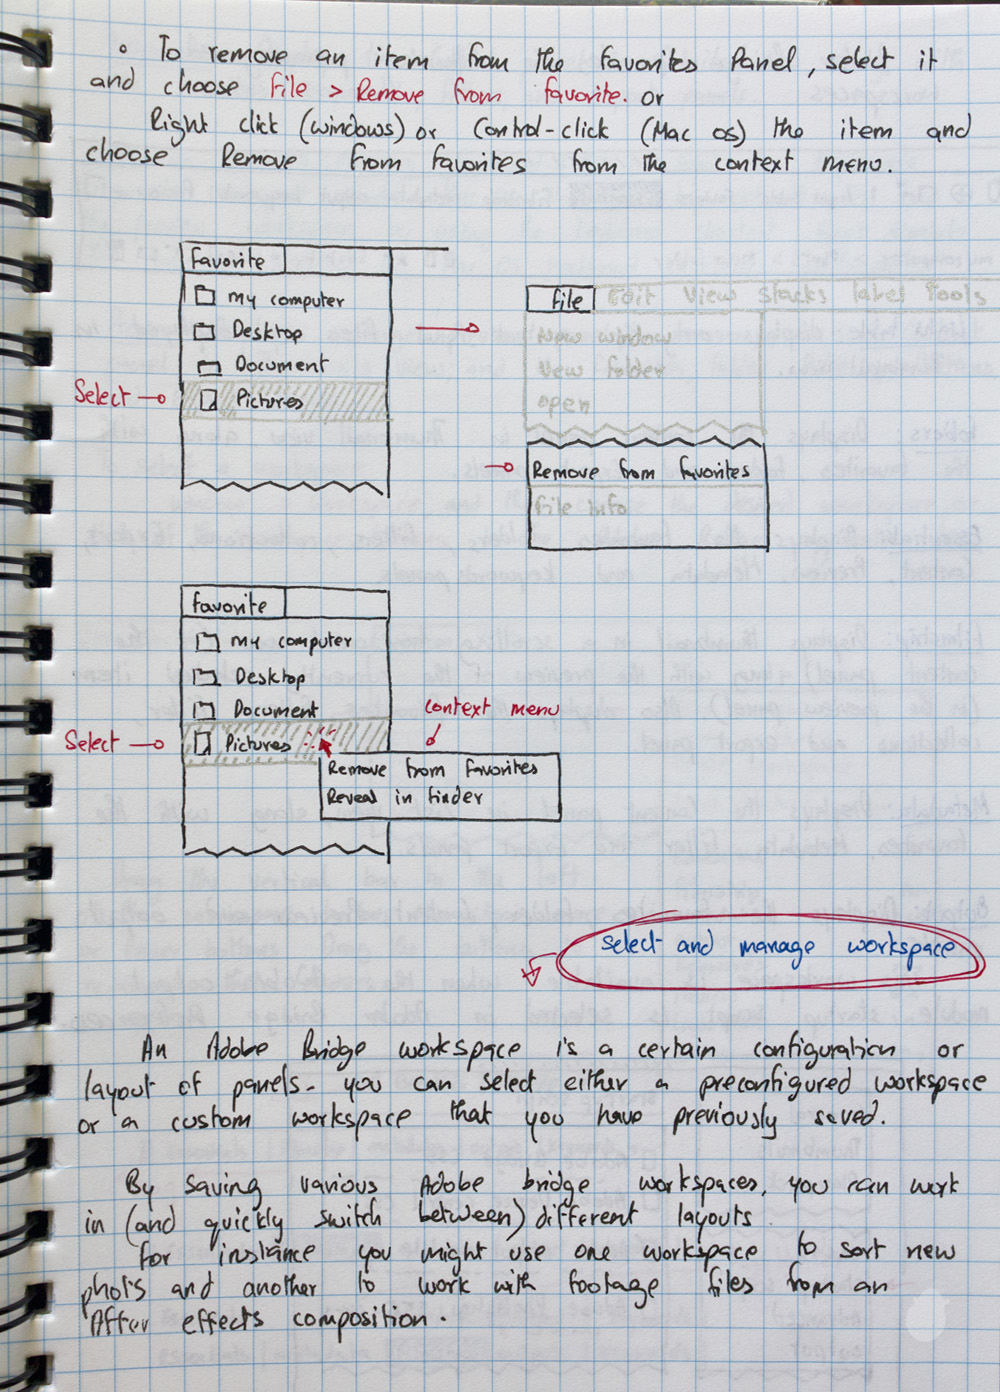 • To remove an item from the favorites Panel, select it
and choose file > Remove from favorite. or
Right click (windows) or Control-click (Mac os) the item and
choose Remove from favorites from the context menu.
favorite
my computer
Desktop
Document
Select
Pictures
file Edit View Stacks label Tools
New window
New folder
open
Remove from favorites
file info
favorite
my computer
Desktop
Document
context menu
Select
Pictures
Remove from favorites
Reveal in finder
select and manage workspace
An Adobe Bridge workspace is a certain configuration or
layout of panels. you can select either a preconfigured workspace
or a custom workspace that you have previously saved.
By saving various Adobe bridge workspaces, you can work
in (and quickly switch between) different layouts.
for instance you might use one workspace to sort new
phots and another to work with footage files from an
After effects composition.